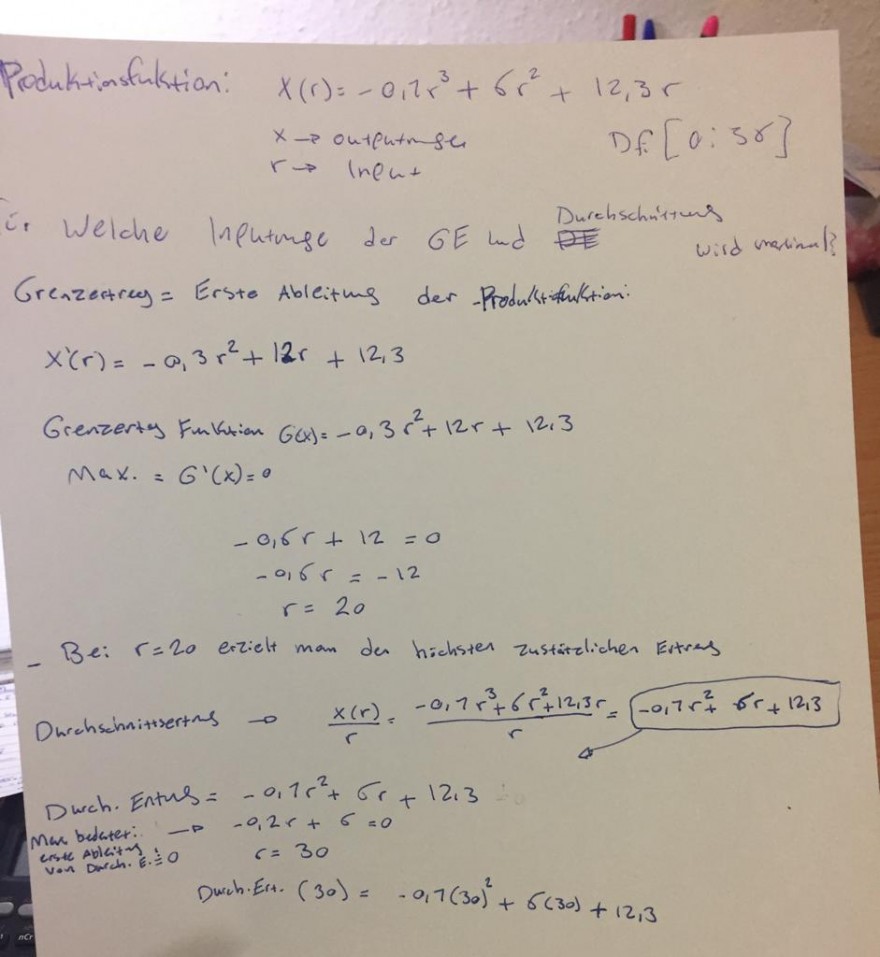 Produktionsfuktion: X(r) = -0,1r³ + 6r² + 12,3r
x → outputmge
r → Input
Df: [0; 36]
Welche Inputmge der GE und Durchschnittens wird maximal?
Grenzertrag = Erste Ableitung der Produktifuktion:
X'(r) = -0,3r² + 12r + 12,3
Grenzertrg Funktion G(x) = -0,3r² + 12r + 12,3
Max. = G'(x) = 0
-0,6r + 12 = 0
-0,6r = -12
r = 20
- Bei r=20 erzielt man den höchsten zusätzlichen Ertrag
Durchschnittsertrag → x(r)/r = (-0,1r³ + 6r² + 12,3r)/r = -0,1r² + 6r + 12,3
Durch. Ertrag = -0,1r² + 6r + 12,3
Max bedeutet: → -0,2r + 6 = 0
erste Ableitung
von Durch. E. = 0
r = 30
Durch. Ert. (30) = -0,1(30)² + 6(30) + 12,3
nCr